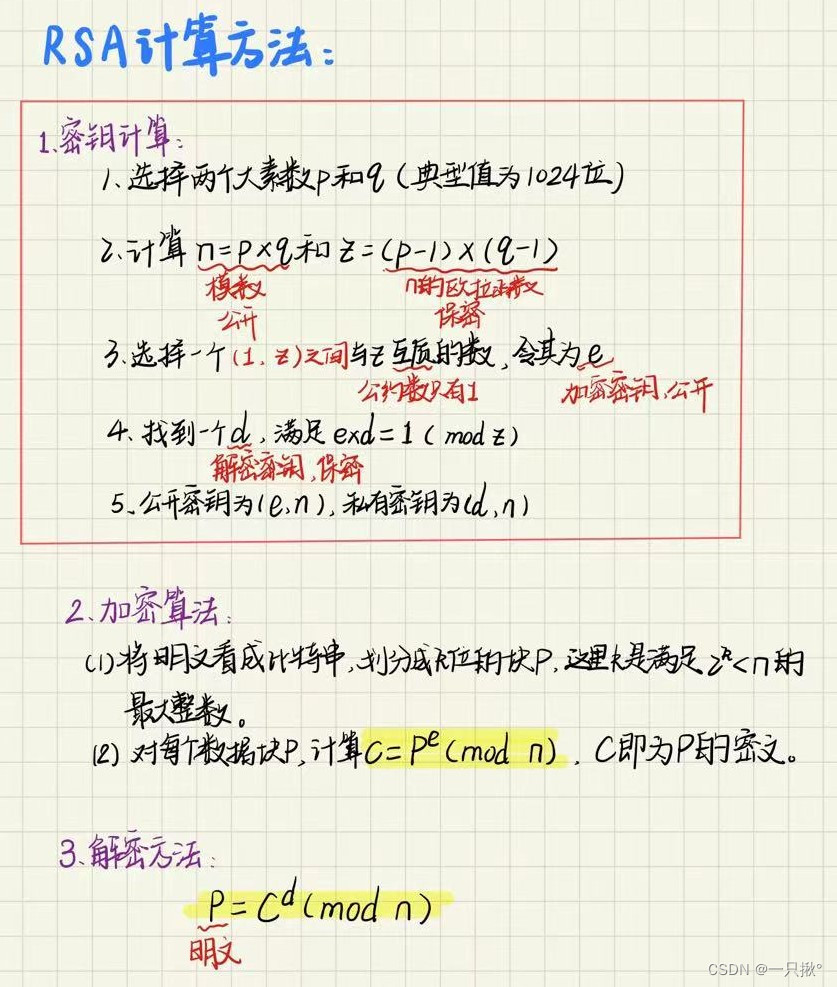 RSA计算方法：
1.密钥计算：
1、选择两个大素数p和q（典型值为1024位）
2、计算n=p×q和z=(p-1)×(q-1)
模数 n的欧拉函数
公开 保密
3、选择一个(1,z)之间与z互质的数，令其为e
公约数只有1 加密密钥,公开
4、找到一个d，满足e×d=1(mod z)
解密密钥,保密
5、公开密钥为(e,n)，私有密钥为(d,n)
2、加密算法：
(1)将明文看成比特串,划分成k位的块P,这里k是满足2^k<n的
最大整数。
(2)对每个数据块P,计算C=P^e(mod n)，C即为P的密文。
3、解密方法：
P=C^d(mod n)
明文
CSDN @一只揪°